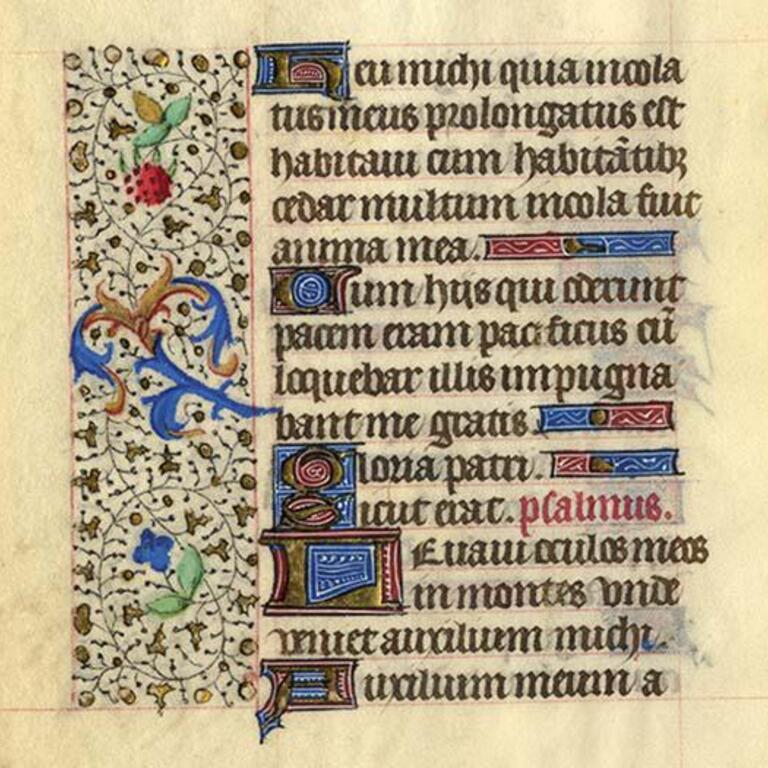 Heu michi quia incola
tus meus prolongatus est
habitaui cum habitãtibꝫ
cedar multum incola fuit
anima mea.
Cum hijs qui oderunt
pacem eram pacificus cũ
loquebar illis impugna
bant me gratis.
Gloria patri.
Sicut erat. psalmus.
LEuaui oculos meos
in montes vnde
veniet auxilium michi.
Auxilium meum a